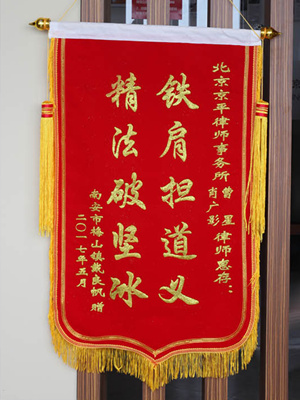 北京京平律师事务所 曹星 肖广影 律师惠存：
铁肩担道义
精法破坚冰
南安市梅山镇戴良帆 赠
二〇一七年五月